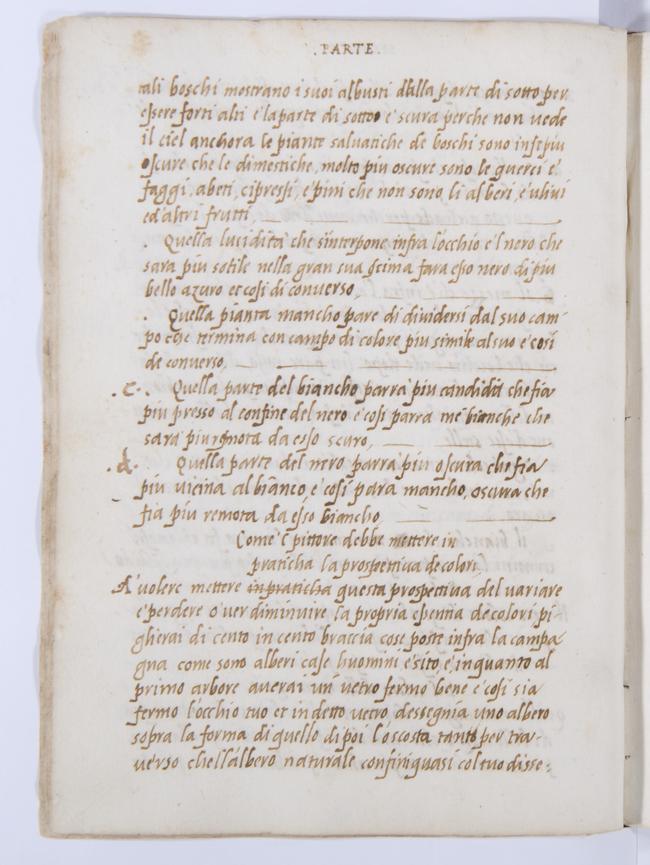 . PARTE .
tali boschi mostrano i suoi albusti dalla parte di sotto per
essere forti alti e la parte di sotto e scura perche non vede
il ciel anchora le piante salvatiche de boschi sono in se piu
oscure che le dimestiche, molto piu oscure sono le querci e
faggi, abeti, cipressi, e pini che non sono li alberi, e ulivi
ed altri frutti,
. Quella lucidita che s'interpone infra l'occhio e'l nero che
sara piu sotile nella gran sua scima fara esso nero di piu
bello azuro et cosi di converso,
. Quella pianta mancho pare di dividersi dal suo cam-
po che termina con campo di colore piu simile al suo e cosi
de converso,
.c. . Quella parte del biancho parra piu candida che fia
piu presso al confine del nero e cosi parra me bianche che
sara piu rimota da esso scuro,
.d. Quella parte del nero parra piu oscura che fia
piu vicina al bianco, e cosi para mancho, oscura che
fia piu remota da esso biancho,
Come il pittore debbe mettere in
praticha la prospettiva de colori,
A' volere mettere in praticha questa prospettiva del variare
e perdere o' ver diminuire la propria essentia de colori pi-
glierai di cento in cento braccia cose poste infra la campa-
gna come sono alberi case huomini e sito, e inquanto al
primo arbore averai un' vetro fermo bene e cosi sia
fermo l'occhio tuo et in detto vetro, dessegnia uno albero
sopra la forma di quello di poi l'oscosta tanto per tra-
verso chell'albero naturale confini quasi col tuo disse-